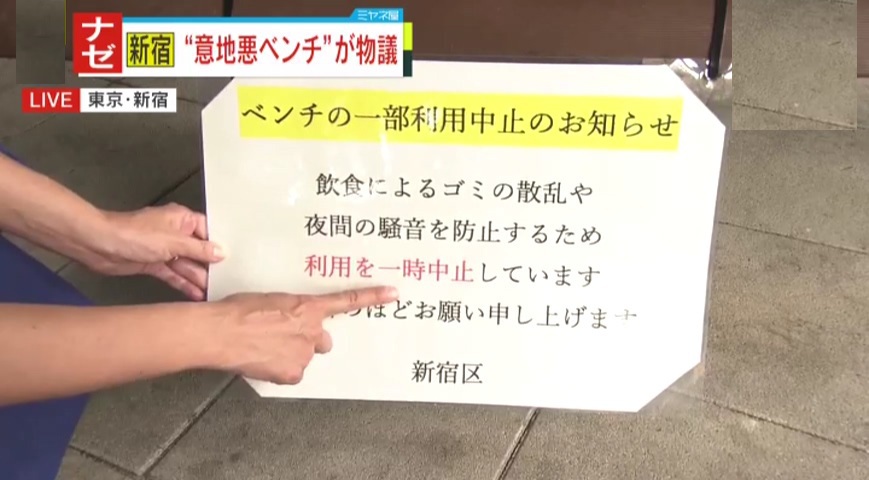 ミヤネ屋
ナゼ 新宿 “意地悪ベンチ”が物議
LIVE 東京・新宿
ベンチの一部利用中止のお知らせ
飲食によるゴミの散乱や
夜間の騒音を防止するため
利用を一時中止しています
のほどお願い申し上げます
新宿区